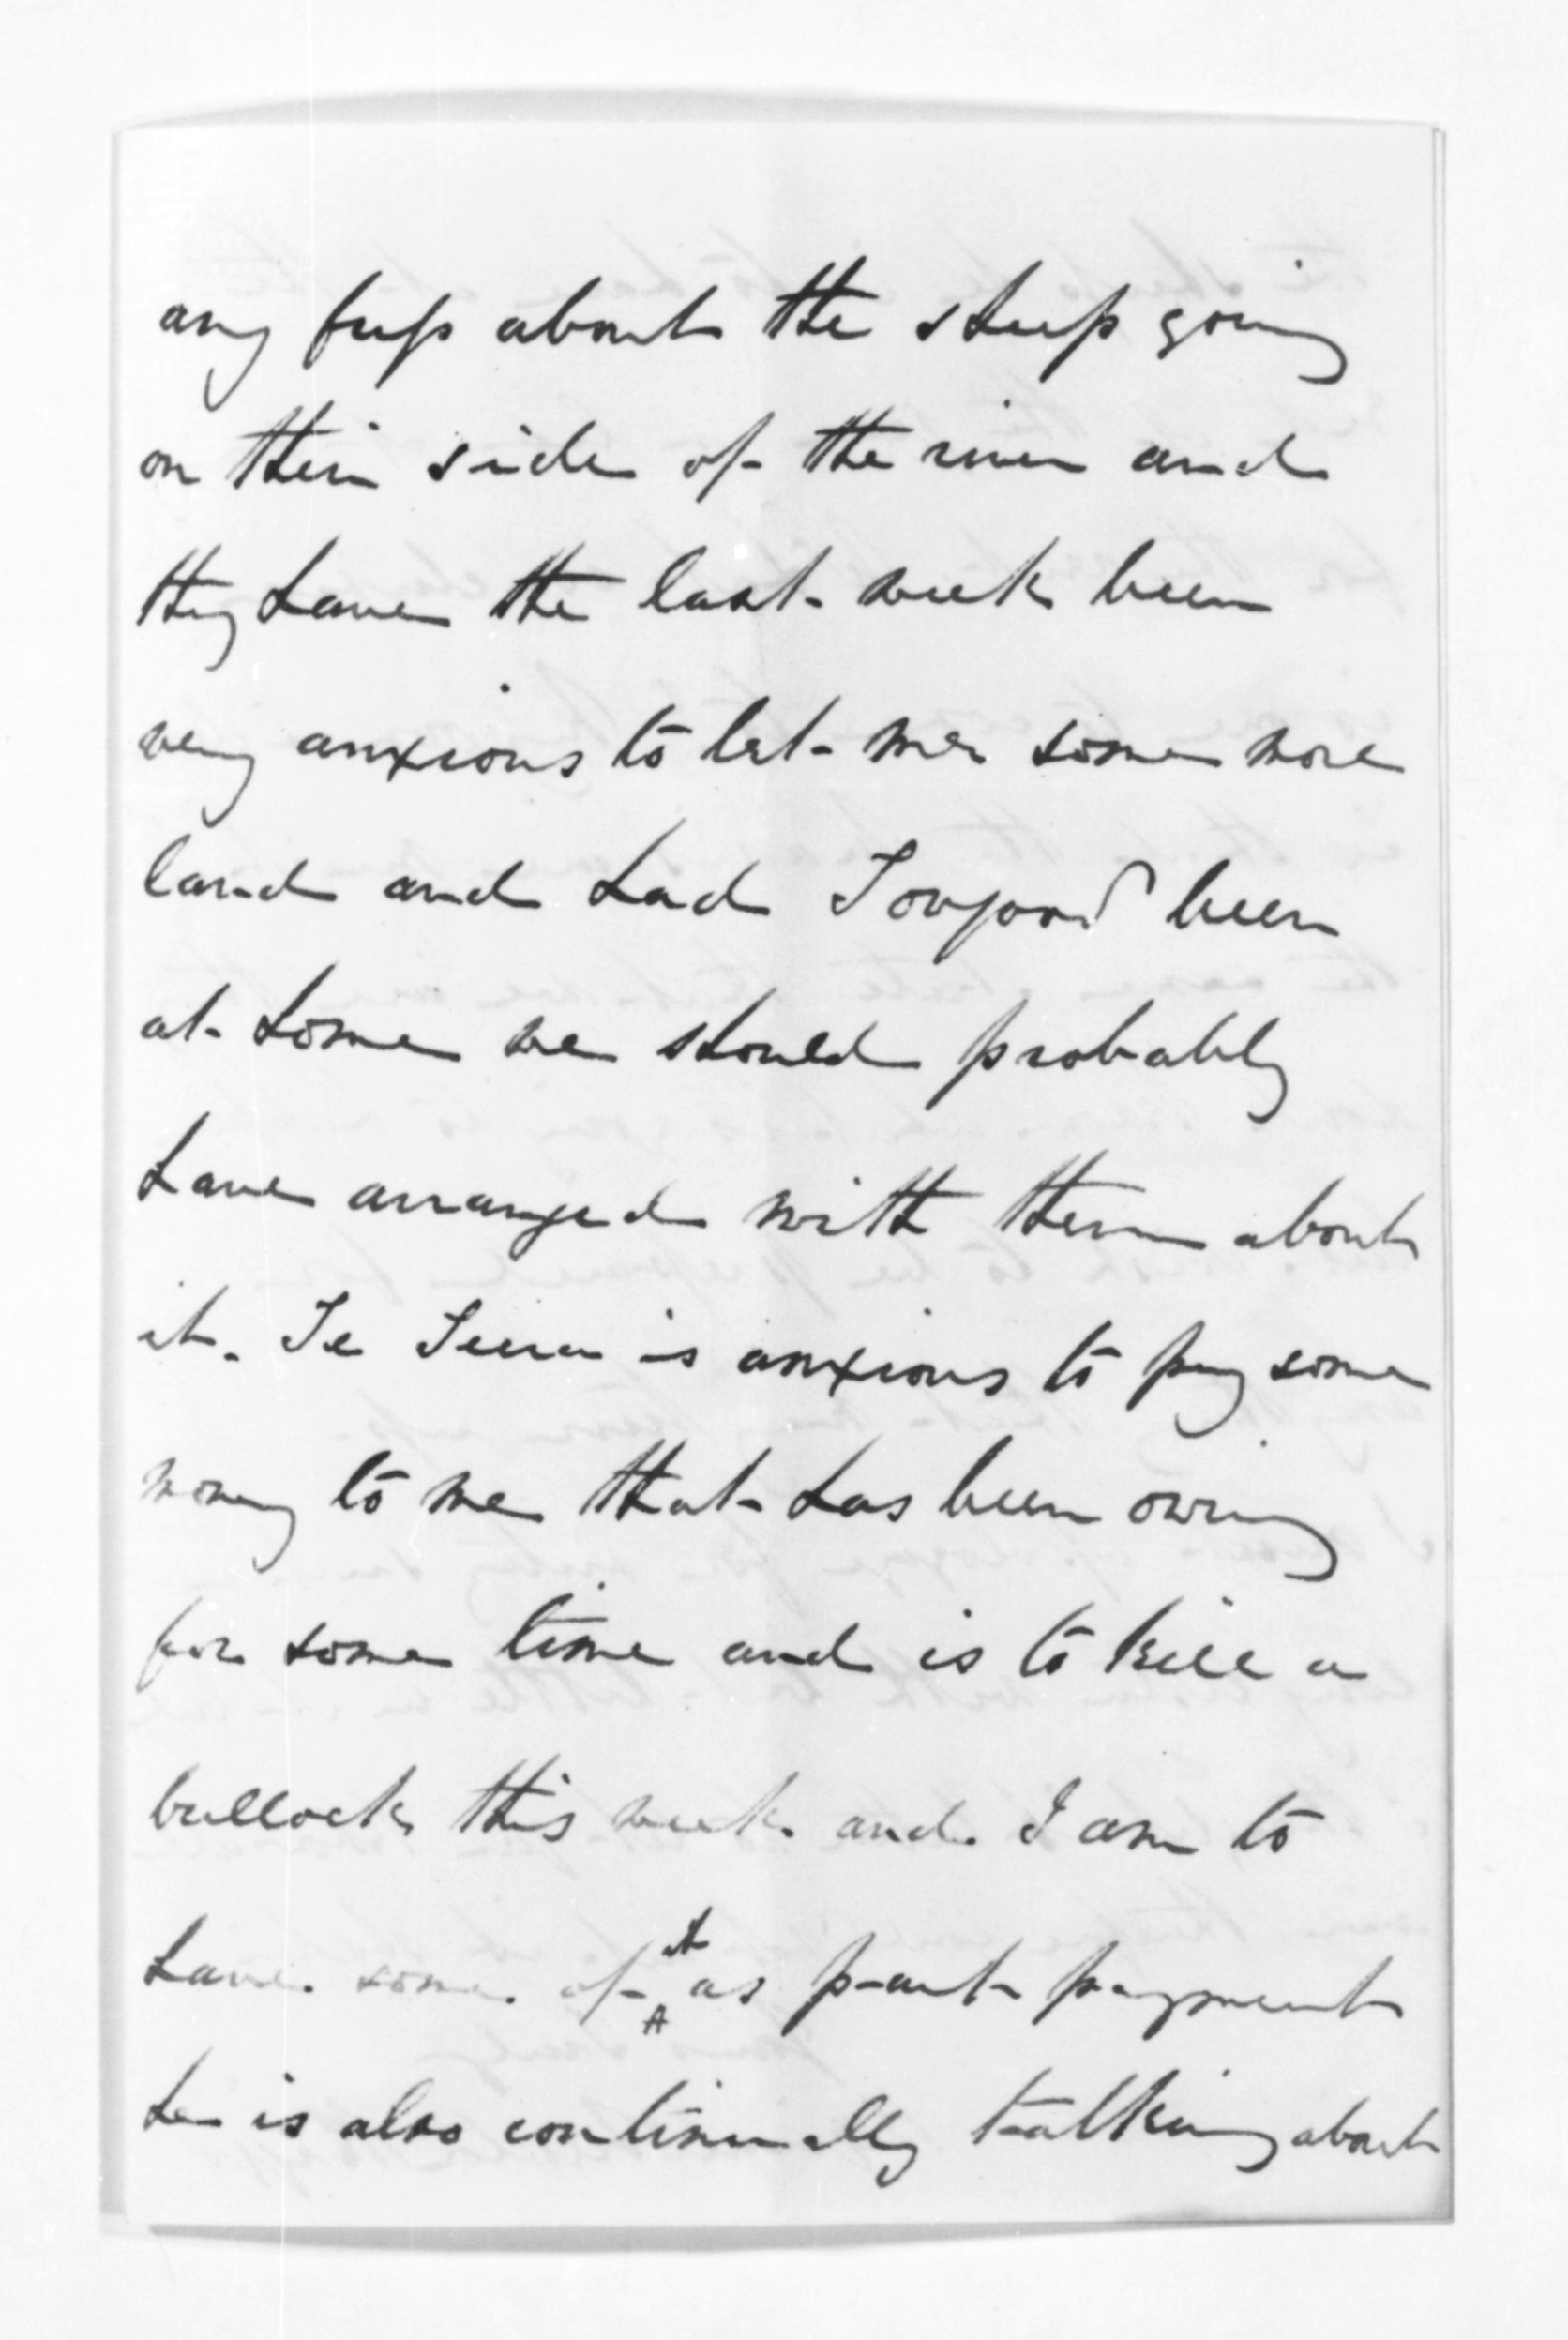 any fuss about the sheep going
on their side of the river and
they have the last week been
very anxious to let me some more
land and had Towgood been
at home we should probably
have arranged with them about
it. Te Teira is anxious to pay some
money to me that has been owing
for some time and is to kill a
bullock this week and I am to
have some of it as part payment
he is also continually talking about